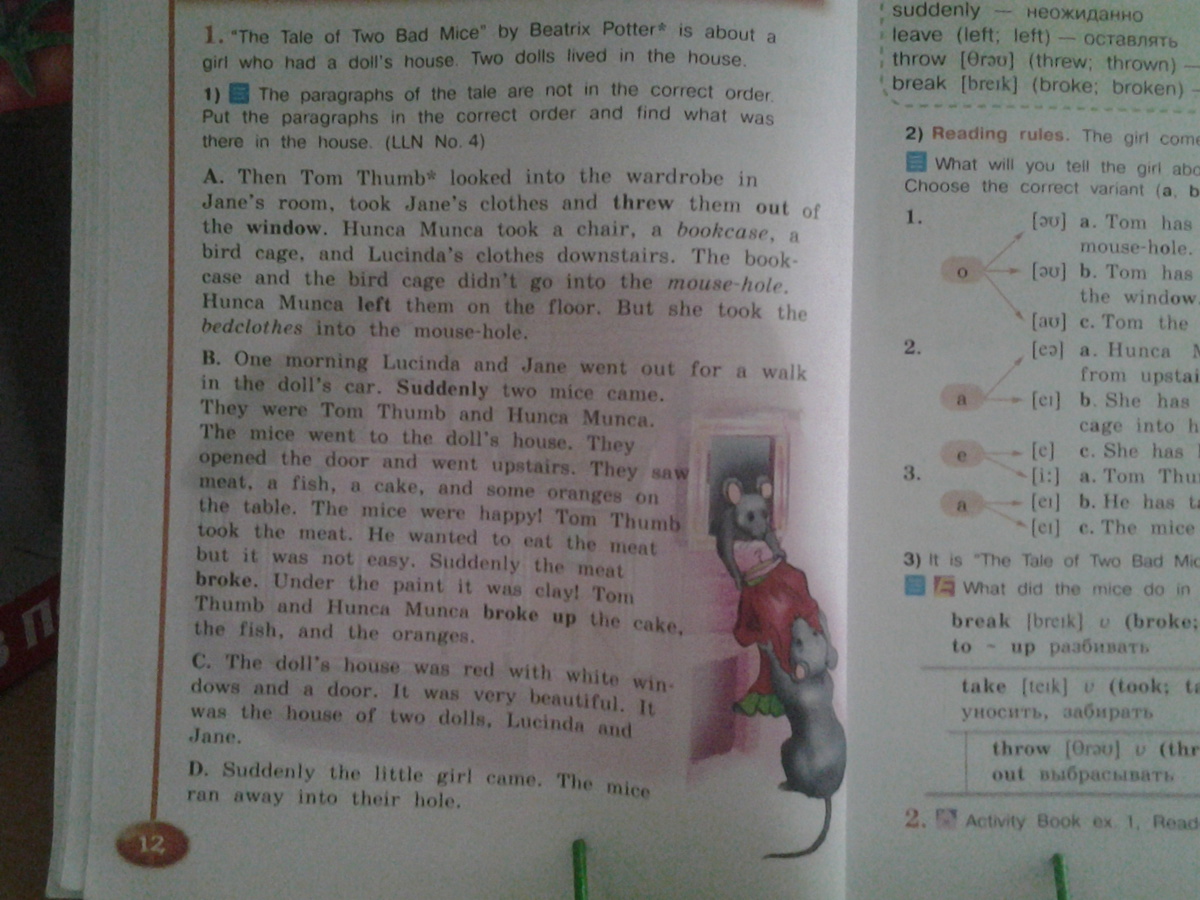 1. "The Tale of Two Bad Mice" by Beatrix Potter* is about a
girl who had a doll's house. Two dolls lived in the house.
1) The paragraphs of the tale are not in the correct order.
Put the paragraphs in the correct order and find what was
there in the house. (LLN No. 4)
A. Then Tom Thumb* looked into the wardrobe in
Jane's room, took Jane's clothes and threw them out of
the window. Hunca Munca took a chair, a bookcase, a
bird cage, and Lucinda's clothes downstairs. The book-
case and the bird cage didn't go into the mouse-hole.
Hunca Munca left them on the floor. But she took the
bedclothes into the mouse-hole.
B. One morning Lucinda and Jane went out for a walk
in the doll's car. Suddenly two mice came.
They were Tom Thumb and Hunca Munca.
The mice went to the doll's house. They
opened the door and went upstairs. They saw
meat, a fish, a cake, and some oranges on
the table. The mice were happy! Tom Thumb
took the meat. He wanted to eat the meat
but it was not easy. Suddenly the meat
broke. Under the paint it was clay! Tom
Thumb and Hunca Munca broke up the cake,
the fish, and the oranges.
C. The doll's house was red with white win-
dows and a door. It was very beautiful. It
was the house of two dolls, Lucinda and
Jane.
D. Suddenly the little girl came. The mice
ran away into their hole.
12
suddenly — неожиданно
leave (left; left) — оставлять
throw [θrəʊ] (threw; thrown) —
break [breɪk] (broke; broken) —
2) Reading rules. The girl come
What will you tell the girl abo
Choose the correct variant (a, b
1.
o
[əʊ] a. Tom has
mouse-hole.
[əʊ] b. Tom has
the window
[aʊ] c. Tom the
2.
a
[eə] a. Hunca M
from upstai
[eɪ] b. She has
cage into h
e
[e] c. She has
3.
[i:] a. Tom Thu
a
[eɪ] b. He has ta
[eɪ] c. The mice
3) It is "The Tale of Two Bad Mic
What did the mice do in
break [breɪk] v (broke;
to ~ up разбивать
take [teɪk] v (took; ta
уносить, забирать
throw [θrəʊ] v (thr
out выбрасывать
2. Activity Book ex. 1, Read